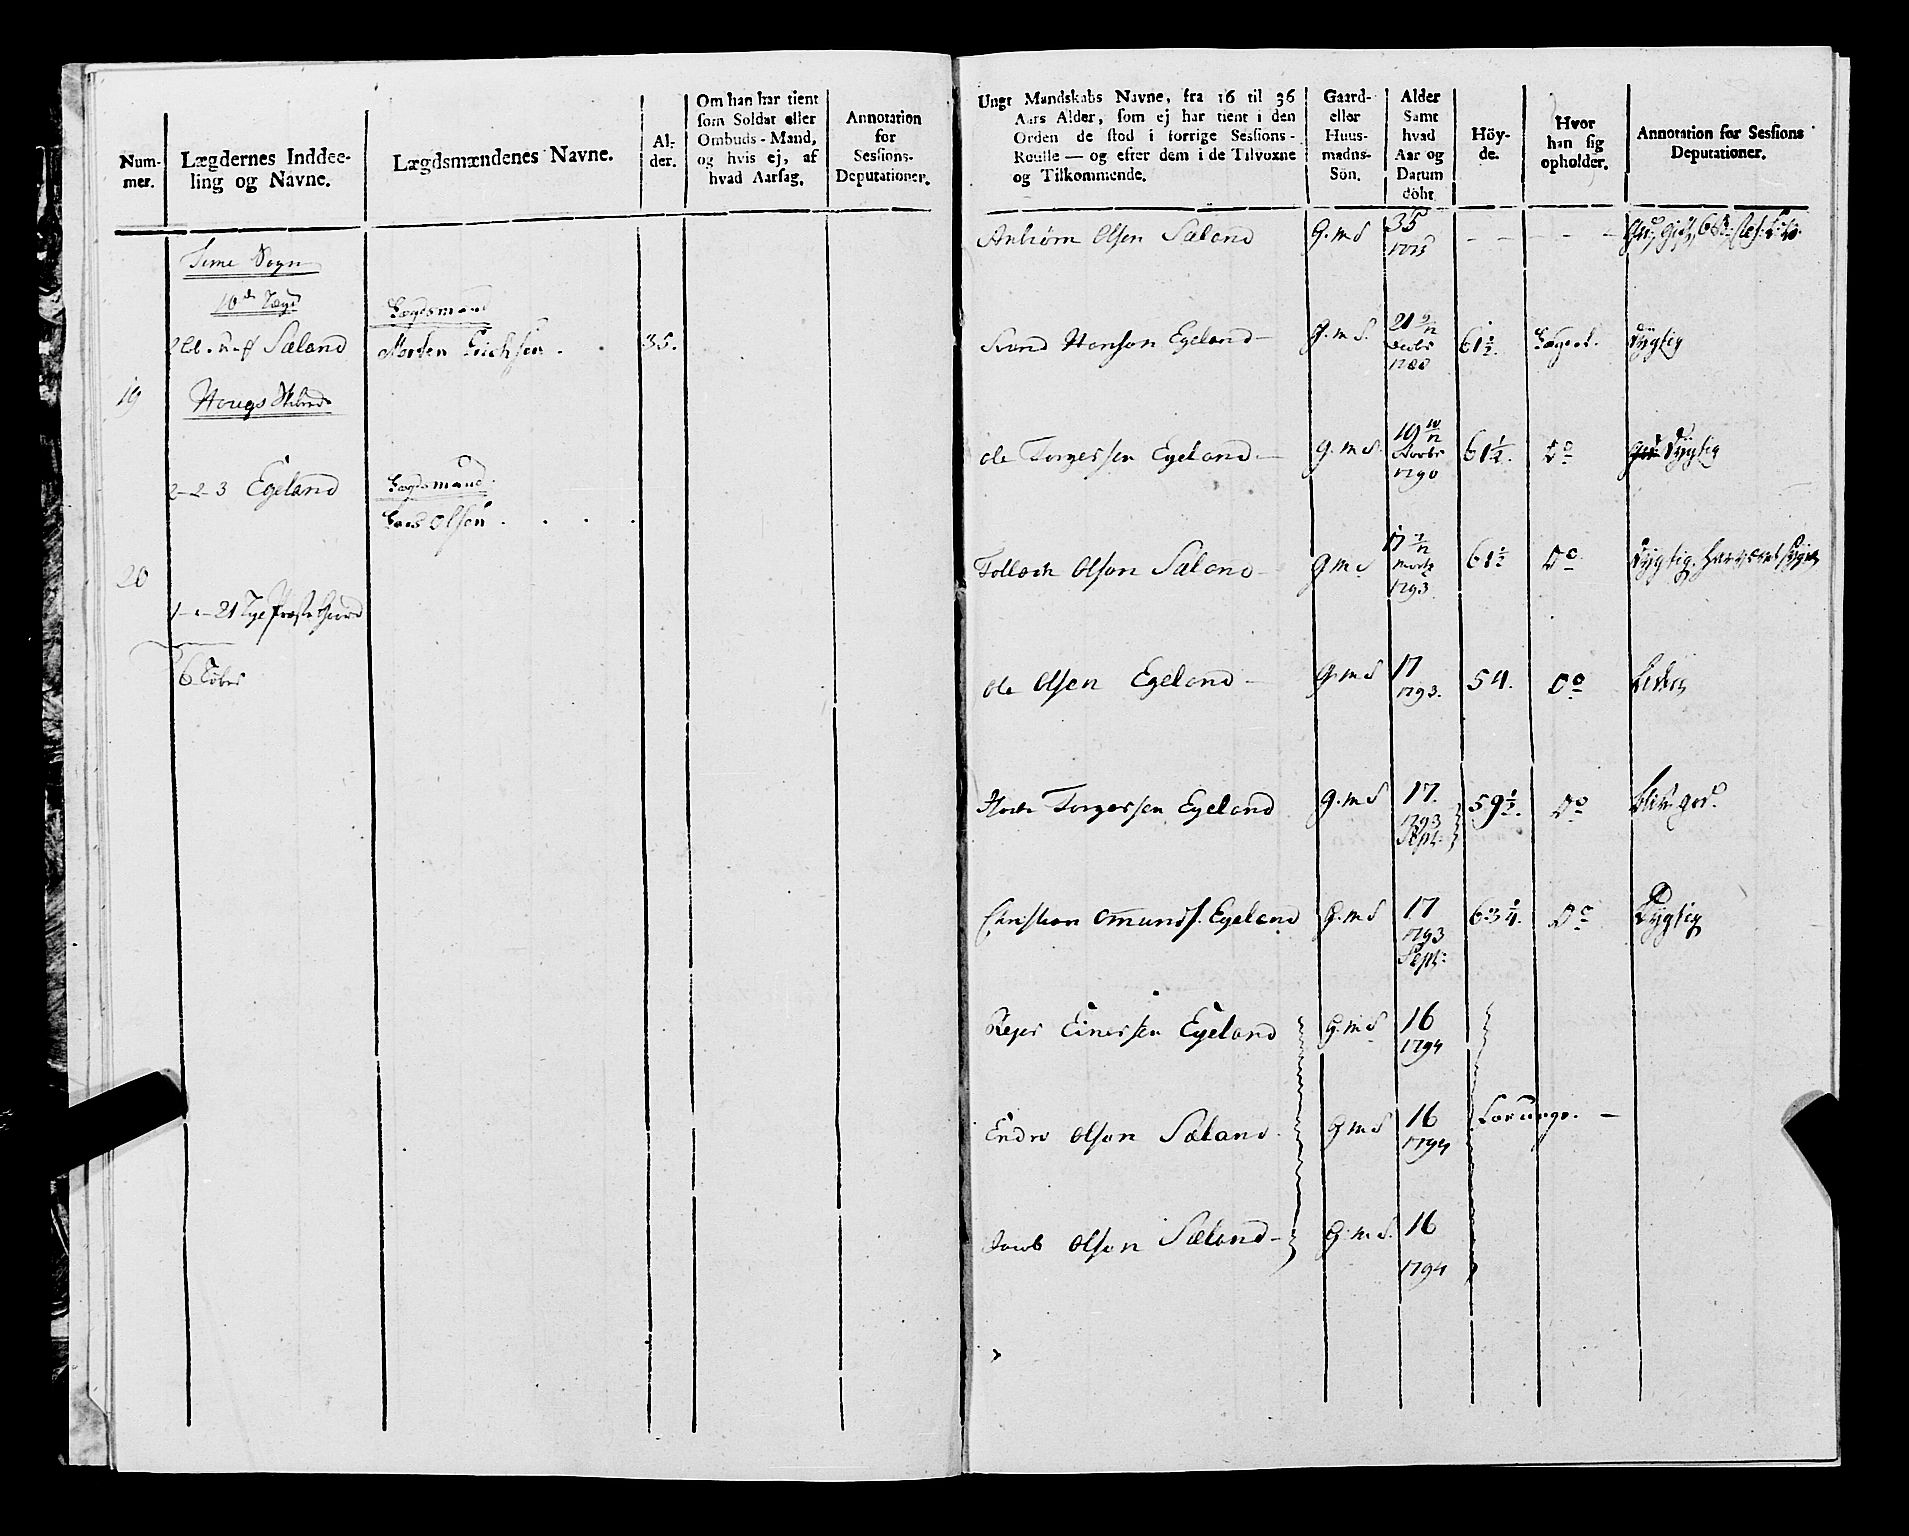 Num-
mer.
Lægdernes Inddee-
ling og Navne.
Lægdsmændenes Navne.
Al-
der.
Om han har tient
som Soldat eller
Ombuds-Mand,
og hvis ej, af
hvad Aarsag.
Annotation
for
Sessions-
Deputationer.
Time Sogn
10de Lægd
Sæland
Lægdsmand
Morten Erichsen . .
35.
19
Houges Skibred
2-2-3 Egeland
Lægdsmand
Lars Olsen . . . .
20
1-.-21 Lye Præste Gaard
6
Ungt Mandskabs Navne, fra 16 til 36
Aars Alder, som ej har tient i den
Orden de stod i forrige Sessions-
Roulle — og efter dem i de Tilvoxne
og Tilkommende.
Gaard-
eller
Huus-
mands-
Sön.
Alder
Samt
hvad
Aar og
Datum
döbt.
Höy-
de.
Hvor
han sig
opholder.
Annotation for Sessions
Deputationer.
Olsen Sæland G.m S 35
1775
Hansen Egeland — G.m S. 21 9/12
1788
61 1/2. Lægdet. Dygtig
Ole Torgersen Egeland — G.m S. 19 10/12
1790
61 1/2. Do Dygtig
Tollach Olsen Sæland — G m S 17 7/12
Martz
1793
61 1/2 Do Dygtig,
Ole Olsen Egeland — G.m S 17
1793.
54. Do
Torgersen Egeland G.m S 17.
1793
Sept:
59 1/2. Do
Christian Omunds. Egeland G.m S 17
1793
Sept:
63 1/4. Do Dygtig
Reier Einersen Egeland G.m S 16
1794
Endre Olsen Sæland. G m S 16
1794
For unge. —
Jacob Olsen Sæland — G.m S. 16
1794